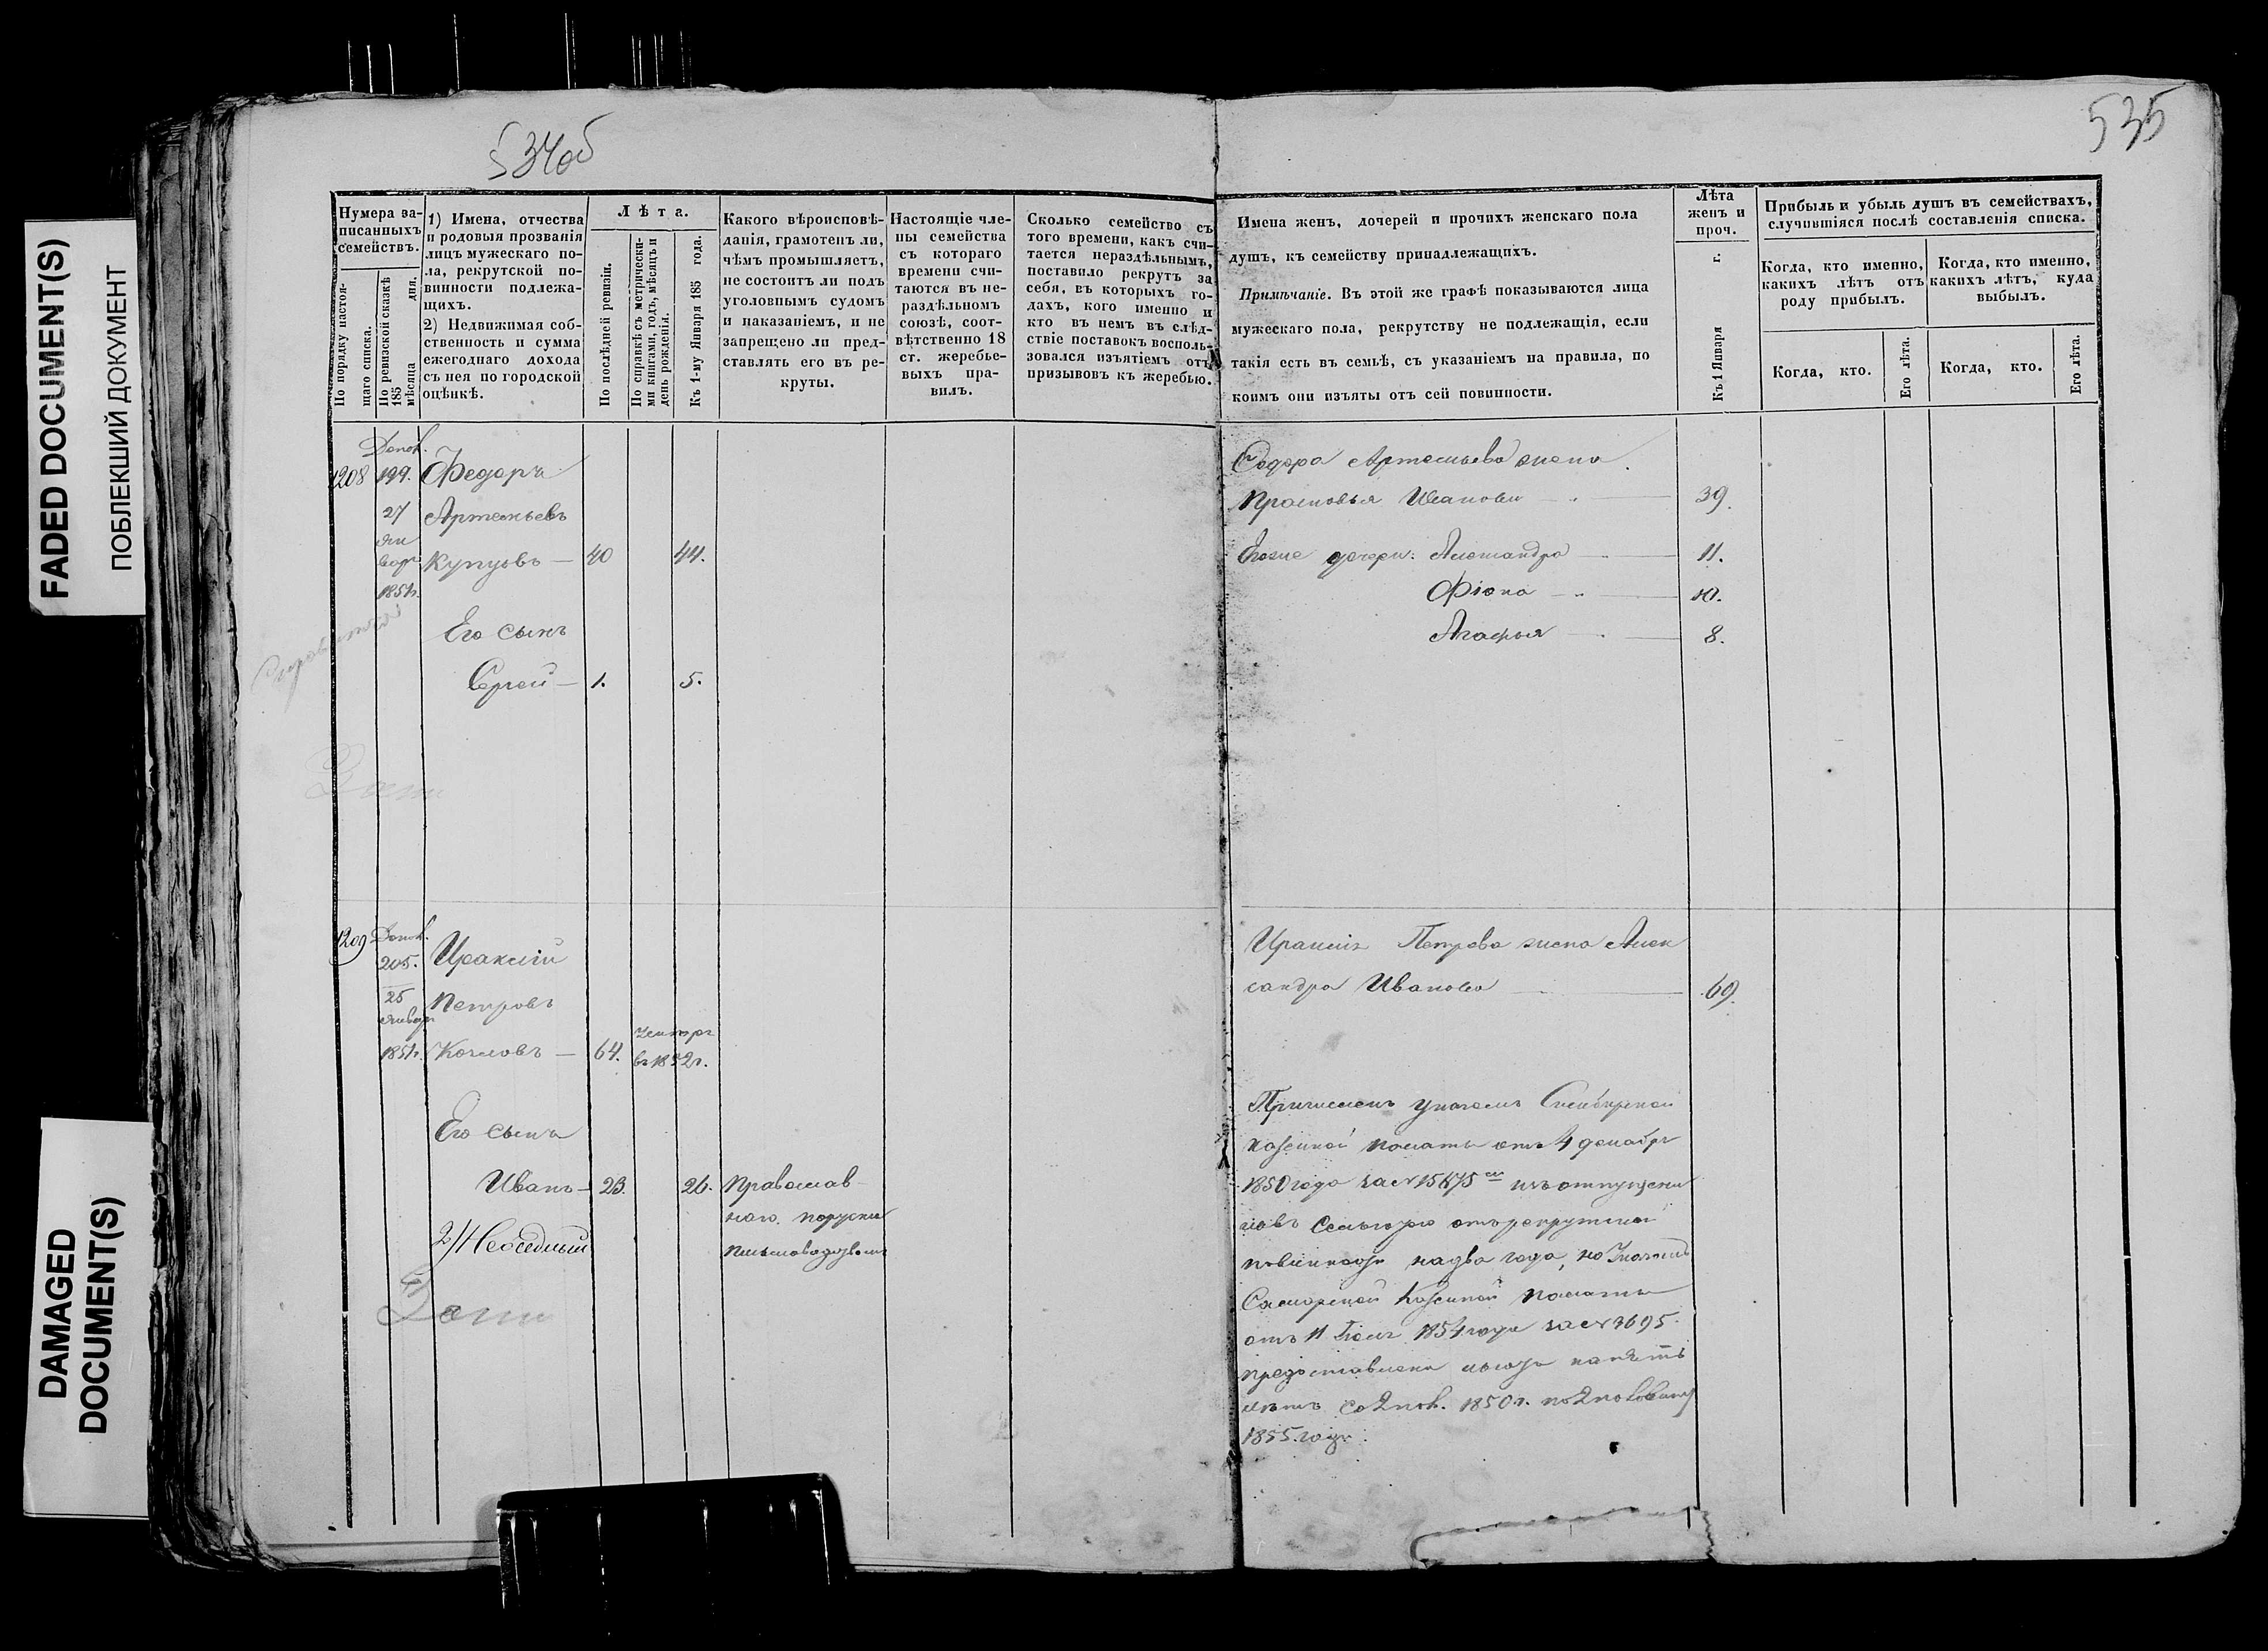 FADED DOCUMENT(S)
ПОБЛЕКШИЙ ДОКУМЕНТ
DAMAGED
DOCUMENT(S)
534об
Нумера за-
писанныхъ
семействъ.
По порядку настоя-
щаго списка.
По ревизской сказкѣ
185 дня,
мѣсяца
1) Имена, отчества
и родовыя прозванія
лицъ мужескаго по-
ла, рекрутской по-
винности подлежа-
щихъ.
2) Недвижимая соб-
ственность и сумма
ежегоднаго дохода
съ нея по городской
оцѣнкѣ.
Лѣта.
По послѣдней ревизіи.
По справкѣ съ метрически-
ми книгами, годъ, мѣсяцъ и
день рожденія.
Къ 1-му Января 185 года.
Какого вѣроисповѣ-
данія, грамотенъ ли,
чѣмъ промышляетъ,
не состоитъ ли подъ
уголовнымъ судомъ
и наказаніемъ, и не
запрещено ли пред-
ставлять его въ ре-
круты.
Настоящіе чле-
ны семейства
съ котораго
времени счи-
таются въ не-
раздѣльномъ
союзѣ, соот-
вѣтственно 18
ст. жеребье-
выхъ пра-
вилъ.
Сколько семейство съ
того времени, какъ счи-
тается нераздѣльнымъ,
поставило рекрутъ за
себя, въ которыхъ го-
дахъ, кого именно и
кто въ немъ въ слѣд-
ствіе поставокъ восполь-
зовался изъятіемъ отъ
призывовъ къ жеребью.
1208
Допол.
199.
27
Ян
варя
1851г.
Федоръ
Артемьевъ
Купцовъ — 40 44.
Его сынъ
Сергей — 1. 5.
1209
Допол.
205.
25
Января
1851г.
Ираклій
Петровъ
Козловъ — 64.
въ 1852г.
Его сынъ
Иванъ — 23. 26. Православ-
наго. поруски
2) Неоседлый
535
Имена женъ, дочерей и прочихъ женскаго пола
душъ, къ семейству принадлежащихъ.
Примѣчаніе. Въ этой же графѣ показываются лица
мужескаго пола, рекрутству не подлежащія, если
такія есть въ семьѣ, съ указаніемъ на правила, по
коимъ они изъяты отъ сей повинности.
Лѣта
женъ и
проч.
Къ 1 Января г.
Прибыль и убыль душъ въ семействахъ,
случившіяся послѣ составленія списка.
Когда, кто именно,
какихъ лѣтъ отъ
роду прибылъ.
Когда, кто именно,
какихъ лѣтъ, куда
выбылъ.
Когда, кто.
Его лѣта.
Когда, кто.
Его лѣта.
Федора Артемьева жена
Прасковья Иванова — 39.
Ихъ дочери: Александра — 11.
Фіона — 10.
Агафья — 8.
Ираклія Петрова жена Алек
сандра Иванова — 69.
Причисленъ указомъ Симбирской
казенной палаты отъ 4 декабря
1850 года за № изъ отпущени
ковъ съ льготою отъ рекрутской
повинности на два года, но Указомъ
Самарской Казенной Палаты
отъ 11 Іюля 1854 года за № 3695
предоставлена льгота на пять
лѣтъ со 2 пол. 1850г. по 2 половину
1855. года.